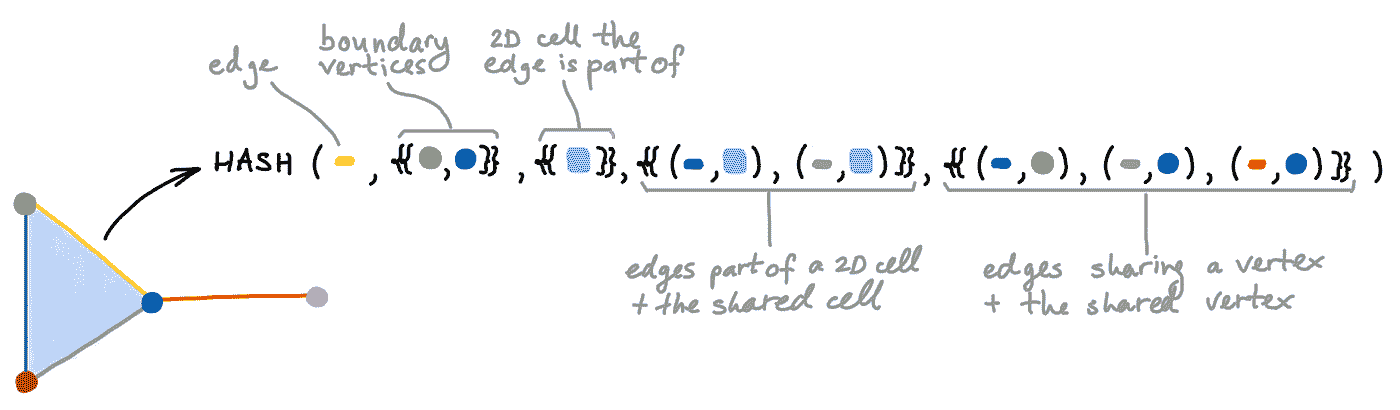 edge
boundary
vertices
2D cell the
edge is part of
HASH ( , {{ , }} , {{ }} , {{ ( , ) , ( , ) }} , {{ ( , ) , ( , ) , ( , ) }} )
edges part of a 2D cell
+ the shared cell
edges sharing a vertex
+ the shared vertex